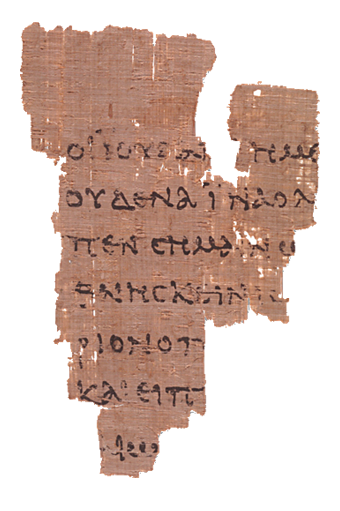 ΟΙΙΟΥΔΑΙ ΗΜΕ
ΟΥΔΕΝΑΙΝΑΟΛ
ΠΕΝCΗΜΑΙΝω
ΘΝΗCΚΕΙΝ
ΡΙΟΝΟΠ
ΚΑΙΕΙΠ